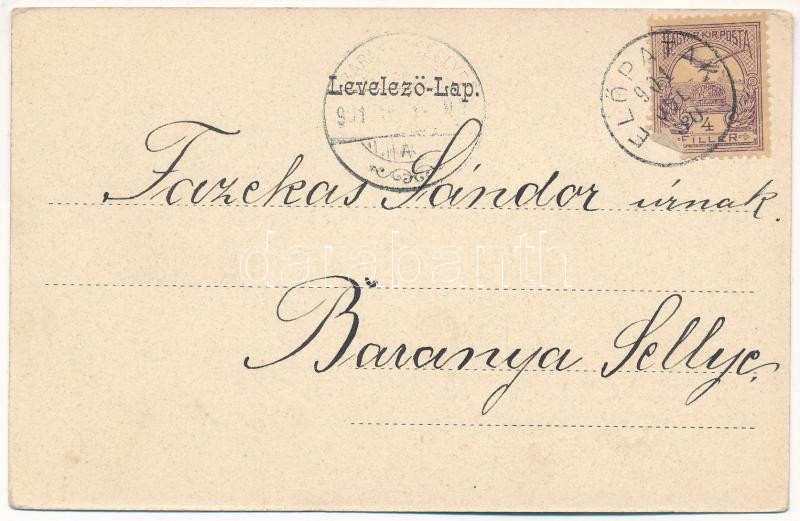 Levelező-Lap.
MAGYAR KIR. POSTA
4
FILLÉR
ELŐPATAK
901
Fazekas Sándor úrnak.
darabanth
Baranya Sellye.